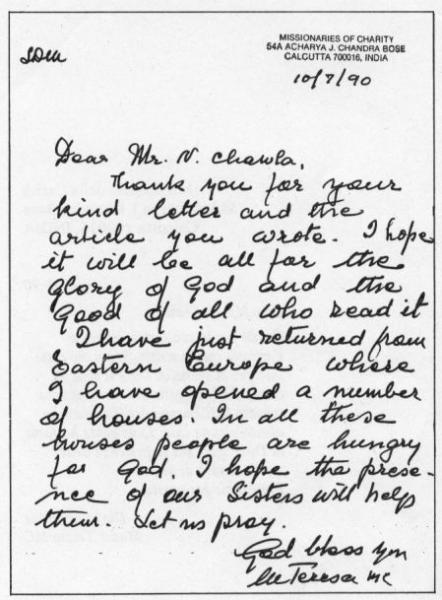 MISSIONARIES OF CHARITY
54A ACHARYA J. CHANDRA BOSE
CALCUTTA 700016, INDIA
LDM
10/7/90
Dear Mr. N. Chawla,
Thank you for your
kind letter and the
article you wrote. I hope
it will be all for the
glory of God and the
good of all who read it
I have just returned from
Eastern Europe where
I have opened a number
of houses. In all these
houses people are hungry
for God. I hope the prese-
nce of our Sisters will help
them. Let us pray.
God bless you
M Teresa mc